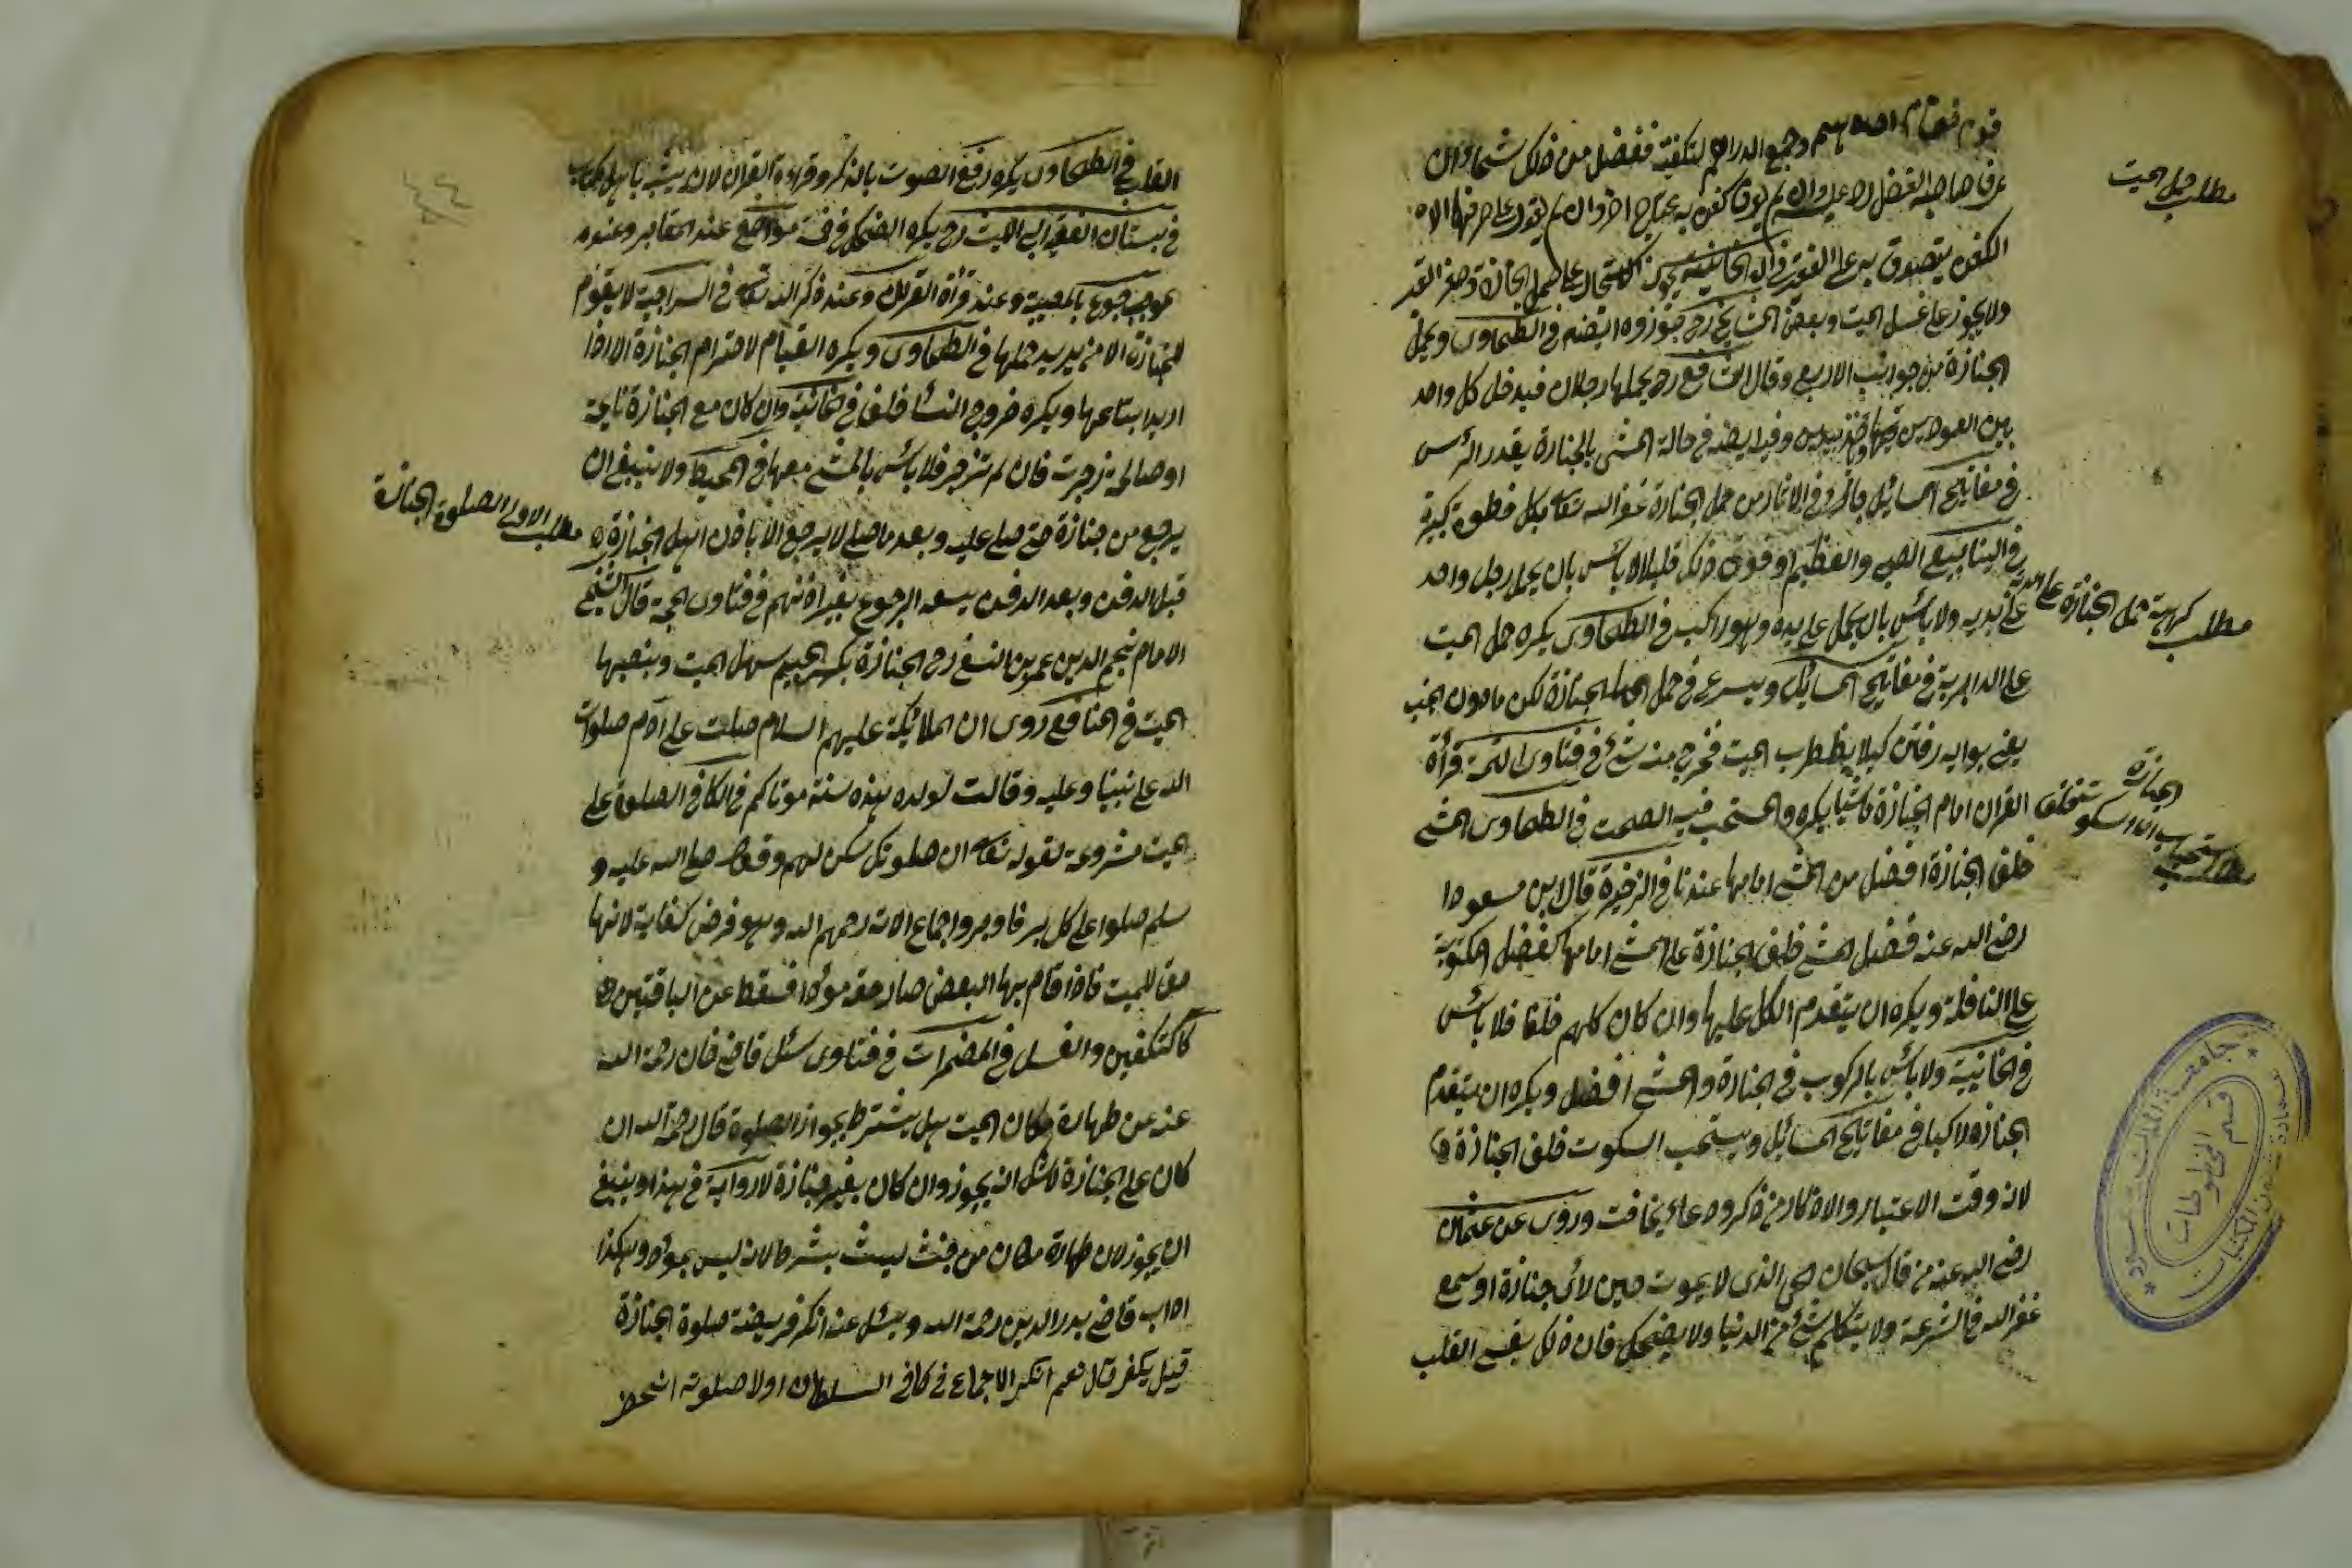 قوم فقام احدهم وجمع الدراهم لتكفينه ففضل من ذلك شئ ان
عرف صاحب الفضل رد عليه وان لم يعرف كفن به محتاج آخر وان لم يقدر على صرفها الى
الكفن يتصدق به على الفقير في الخانية يجوز الاستيجار على حمل الجنازة وحفر القبر
ولا يجوز على غسل الميت وبعض المشايخ رح جوزوه ايضا في الطحاوي ويحمل
الجنازة من جوانب الاربع وقال الشافعي رح يحملها رجلان فيدخل كل واحد
بين العمودين وفيه ايضا في حالة المشي بالجنازة يقدم الرأس
في مفاتيح المسائل من حمل الجنازة غفر الله تعالى بكل خطوة كبيرة
في الينابيع الصبي والفطيم او فوق ذلك قليلا لا بأس بان يحمل رجل واحد
على يديه ولا بأس بان يحمل على يده وهو راكب في الطحاوي يكره حمل الميت
على الدابة في مفاتيح المسائل ويسرع في حمل الجنازة لكن ما دون الخبب
يعني بوايه رفتن كيلا يضطرب الميت فخرج منه شئ في فتاوى الحجة قرأة
القرآن امام الجنازة ماشيا يكره والمستحب فيه الصمت في الطحاوي المشي
خلف الجنازة افضل من المشي امامها عندنا في الذخيرة قال ابن مسعود
رضي الله عنه فضل المشي خلف الجنازة على المشي امامها كفضل المكتوبة
على النافلة ويكره ان يتقدم الكل عليها وان كان كلهم خلفا فلا بأس
في الخانية ولا بأس بالركوب في الجنازة والمشي افضل ويكره ان يتقدم
الجنازة راكبا في مفاتيح المسائل ويستحب السكوت خلف الجنازة
لانه وقت الاعتبار والاذكار من ذكر ودعاء يخافت وروي عن عثمان
رضي الله عنه من قال سبحان حي الذي لا يموت حين رأى جنازة او سمع
غفر الله في الشرعة ولا يتكلم بشئ من الدنيا ولا يضحك فان ذلك يقسي القلب
مطلب حمل الميت
مطلب كراهة حمل الجنازة على الدابة
مطلب استحباب السكوت خلف الجنازة
جامعة الملك سعود
قسم المخطوطات
عمادة شؤون المكتبات
القلب في الطحاوي يكره رفع الصوت بالذكر وقراءة القرآن لانه يشبه باهل كتاب
في بستان الفقيه ابي الليث رح يكره الضحك في مواضع عند المقابر وعنده
عند المصيبة وعند قرأة القرآن وعند ذكر الله تعالى في السراجية لا يقوم
للجنازة الا من يريد حملها في الطحاوي ويكره القيام لاحترام الجنازة الا اذا
اريد اتباعها ويكره خروج النساء خلف في خانية وان كان مع الجنازة نايحة
او صالحة زجرت فان لم تنزجر فلا بأس بالمشي معها في المحيط ولا ينبغي ان
يرجع من جنازة حتى صلى عليه وبعد ما صلى لا يرجع الا باذن اهل الجنازة
قبل الدفن وبعد الدفن يسعه الرجوع بغير اذنهم في فتاوى الحجة قال الشيخ
الامام نجم الدين عمر بن النسفي رح الجنازة بكسر الجيم سرير الميت وبنصبها
الميت في المنافع روى ان الملائكة عليهم السلام صلت على آدم صلوات
الله على نبينا وعليه وقالت لولده هذه سنة موتاكم في الكافي الصلوة على
الميت مشروعة لقوله تعالى ان صلوتك سكن لهم وقوله صلى الله عليه و
سلم صلوا على كل بر وفاجر واجماع الامة رحمهم الله وهو فرض كفاية لانها
حق للميت فاذا قام بها البعض صار حقه مؤدا فسقط عن الباقين
كالتكفين والغسل في المضمرات في فتاوى سئل قاضي خان رحمة الله
عنه عن طهارة مكان الميت هل يشترط بجواز الصلوة قال رحمة الله ان
كان على الجنازة لا شك انه يجوز وان كان بغير جنازة لا رواية في هذا وينبغي
ان يجوز لان طهارة مكان ليست بشرط لانه ليس بمؤد وهكذا
اجاب قاضي بدر الدين رحمة الله وسئل عنه انكر فريضة صلوة الجنازة
قيل يكفر قال نعم انكر الاجماع في كافي السلطان اولا صلوته ان حضر
مطلب الاولى الصلوة الجنازة